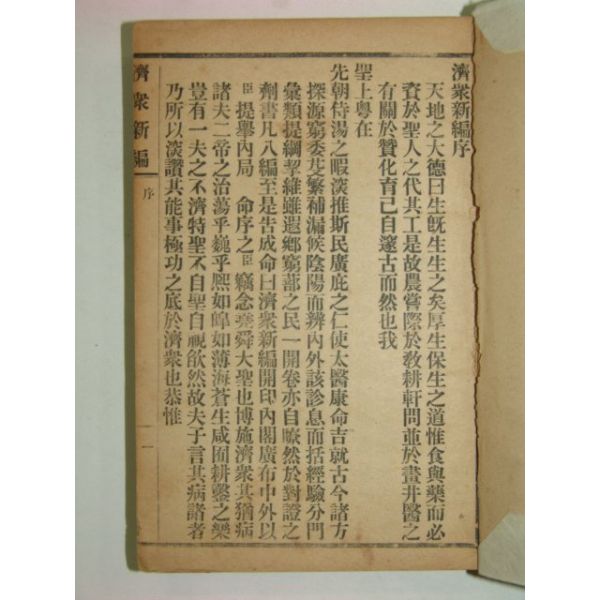 濟衆新編序
天地之大德曰生旣生生之矣厚生保生之道惟食與藥而必
資於聖人之代其工是故農嘗際於敎耕軒問並於畫井醫之
有關於贊化育已自邃古而然也我
聖上粤在
先朝侍湯之暇淡推斯民廣庇之仁使太醫康命吉就古今諸方
探源窮委芟繁補漏候陰陽而辨內外該診息而括經驗分門
彙類提綱挈維雖遐鄕窮蔀之民一開卷亦自瞭然於對證之
劑書凡八編至是告成命曰濟衆新編開印內閣廣布中外以
臣提舉內局 命序之臣竊念堯舜大聖也博施濟衆其猶病
諸夫二帝之治蕩乎巍乎熙如皥如薄海蒼生咸囿耕鑿之樂
豈有一夫之不濟特聖不自聖自視欿然故夫子言其病諸者
乃所以淡讚其能事極功之底於濟衆也恭惟
濟衆新編
序
一